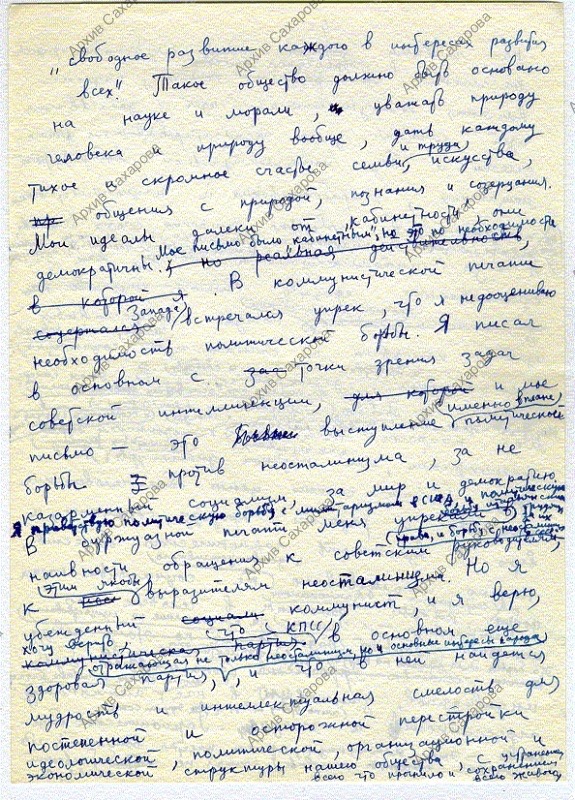 "свободное развитие каждого в интересах развития
всех". Такое общество должно быть основано
на науке и морали, уважать природу
человека и природу вообще, дать каждому
тихое и скромное счастье семьи, и труда искусства,
общения с природой, познания и созерцания.
Мои идеалы далеки от "кабинетности", они
Мое письмо было "кабинетным", но это по необходимости
демократичны. , но реальная действительность,
в которой я
содержался Запада
В коммунистической печати
встречался упрек, что я недооцениваю
необходимость политической борьбы. Я писал
в основном с точки зрения задач
советской интеллигенции, для которой и мое
письмо — это выступление именно в плане политической
борьбы против неосталинизма, за не
казарменный социализм, за мир и демократию.
Я приветствую политическую борьбу с милитаризмом в США и политическую
В буржуазной печати меня упрекали в
наивности обращения к советским руководителям,
к этим якобы выразителям неосталинизма. Но я
убежденный коммунист, и я верю,
хочу верить,
коммунистическая партия что КПСС в основном еще
отражающая не только неосталинизм, но и основные интересы народа
здоровая партия, и что в ней найдется
мудрость и интеллектуальная смелость для
постепенной и осторожной перестройки
идеологической, политической, организационной и
экономической структуры нашего общества, с устранением
всего что прогнило и сохранением
всего живого
Архив Сахарова